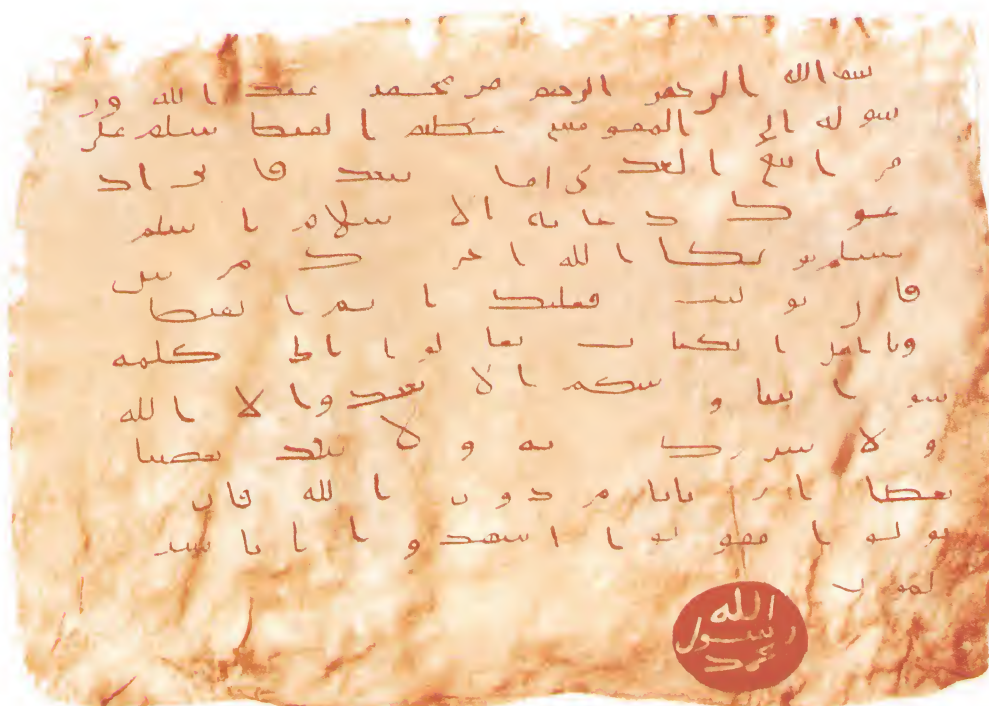 بسم الله الرحمن الرحيم من محمد عبد الله ور
سوله الى المقوقس عظيم القبط سلام على
من اتبع الهدى اما بعد فانى اد
عوك بدعاية الاسلام اسلم
تسلم يؤتك الله اجرك مرتين
فان توليت فعليك اثم القبط
ويا اهل الكتاب تعالوا الى كلمة
سواء بيننا وبينكم الا نعبد الا الله
ولا نشرك به ولا يتخذ بعضنا
بعضا اربابا من دون الله فان
تولوا فقولوا اشهدوا بانا مسـ
لمون
الله
رسول
محمد